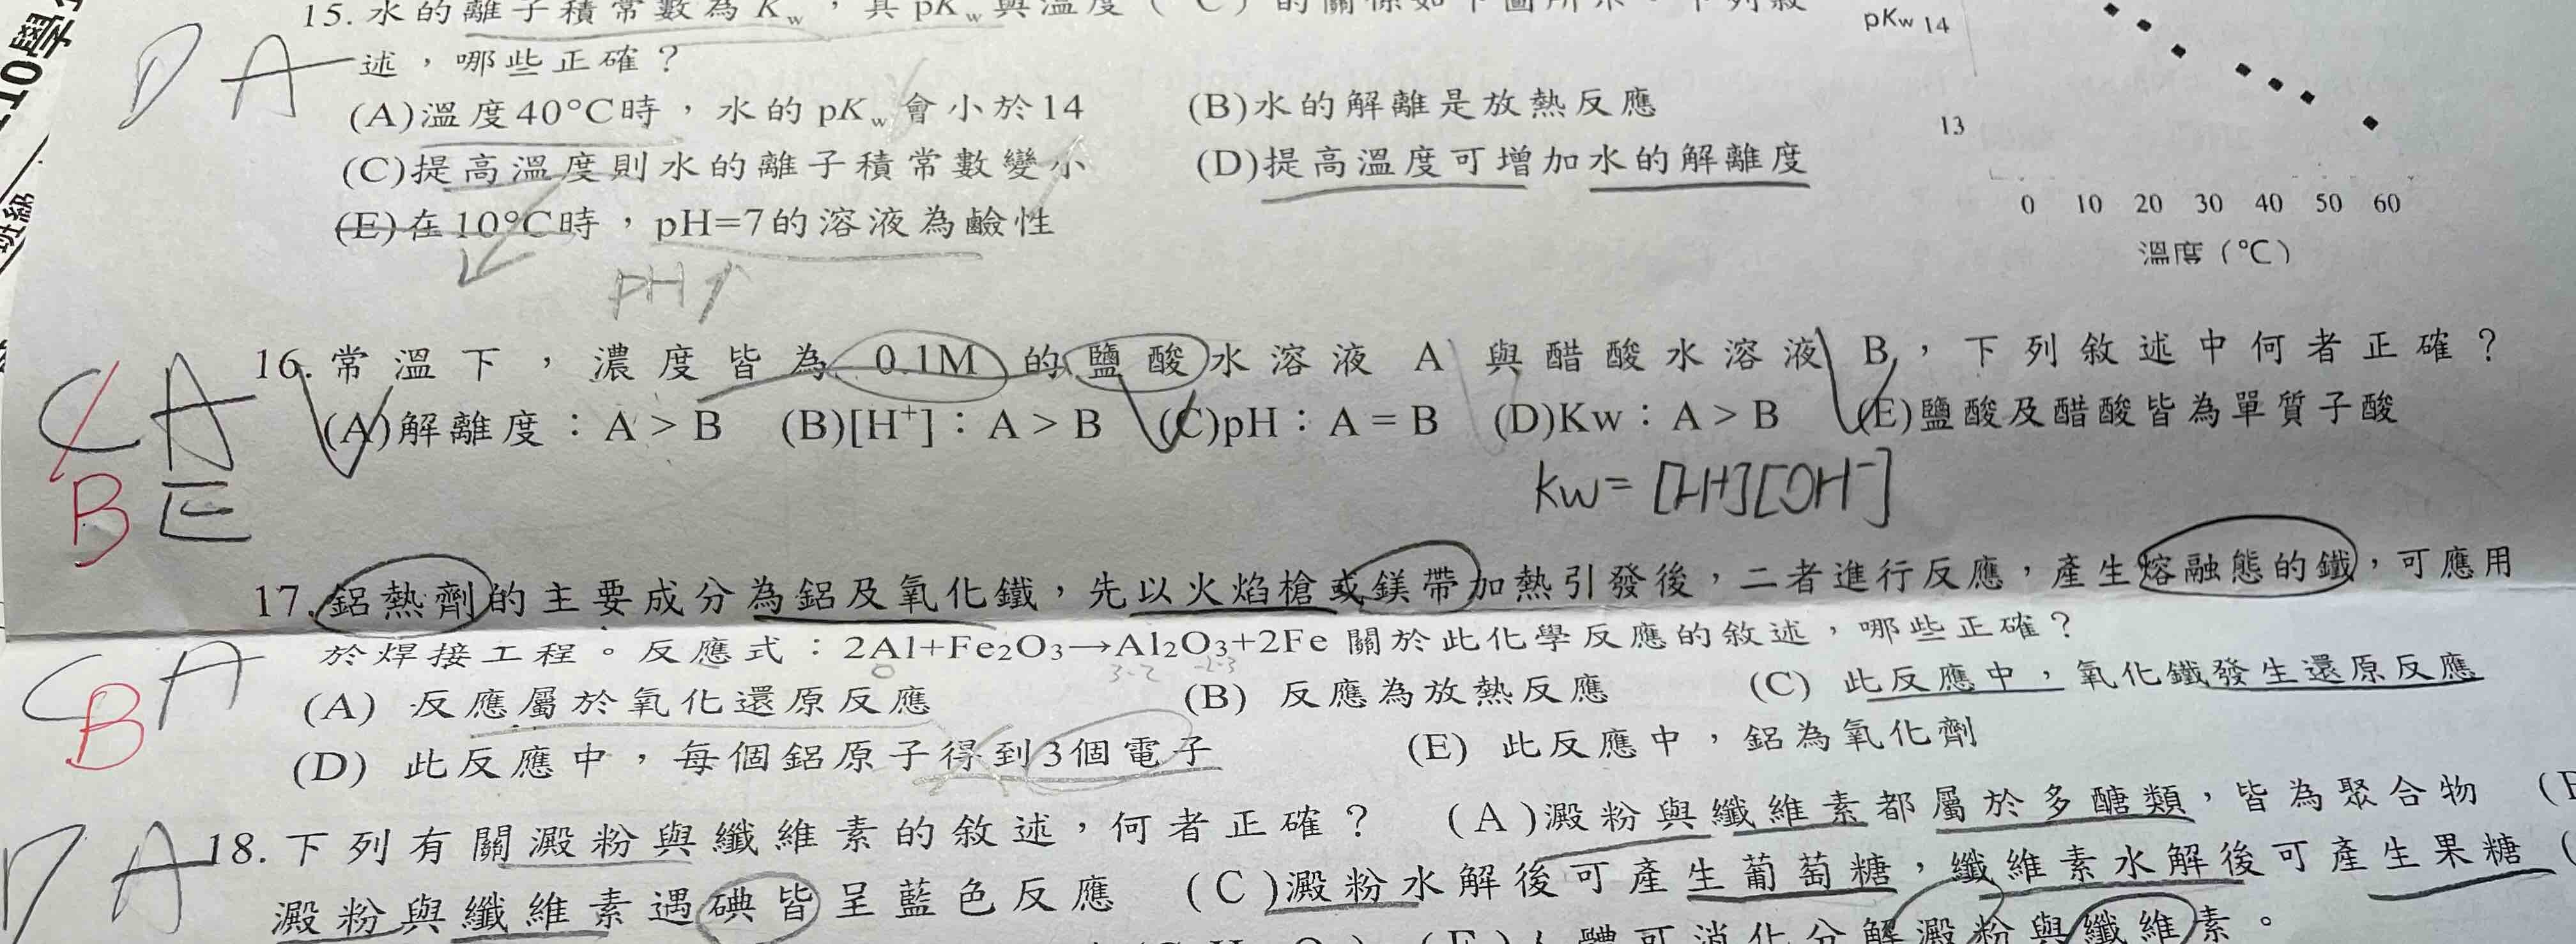 110學
班級
15. 水的離子積常數為Kw，其pKw與溫度(°C)的關係如下圖所示。下列敘
述，哪些正確？
D A
(A)溫度40°C時，水的pKw會小於14 (B)水的解離是放熱反應
(C)提高溫度則水的離子積常數變小 (D)提高溫度可增加水的解離度
(E)在10°C時，pH=7的溶液為鹼性
pH↑
pKw 14
13
0 10 20 30 40 50 60
溫度(°C)
16. 常溫下，濃度皆為 0.1M 的鹽酸水溶液 A 與醋酸水溶液 B，下列敘述中何者正確？
(A)解離度：A > B (B)[H⁺]：A > B (C)pH：A = B (D)Kw：A > B (E)鹽酸及醋酸皆為單質子酸
C A
B E
Kw=[H][OH⁻]
17. 鋁熱劑的主要成分為鋁及氧化鐵，先以火焰槍或鎂帶加熱引發後，二者進行反應，產生熔融態的鐵，可應用
於焊接工程。反應式：2Al+Fe₂O₃→Al₂O₃+2Fe 關於此化學反應的敘述，哪些正確？
C A
B
(A) 反應屬於氧化還原反應 (B) 反應為放熱反應 (C) 此反應中，氧化鐵發生還原反應
(D) 此反應中，每個鋁原子得到3個電子 (E) 此反應中，鋁為氧化劑
A
18. 下列有關澱粉與纖維素的敘述，何者正確？ (A)澱粉與纖維素都屬於多醣類，皆為聚合物
澱粉與纖維素遇碘皆呈藍色反應 (C)澱粉水解後可產生葡萄糖，纖維素水解後可產生果糖 (
(E)人體可消化分解澱粉與纖維素。